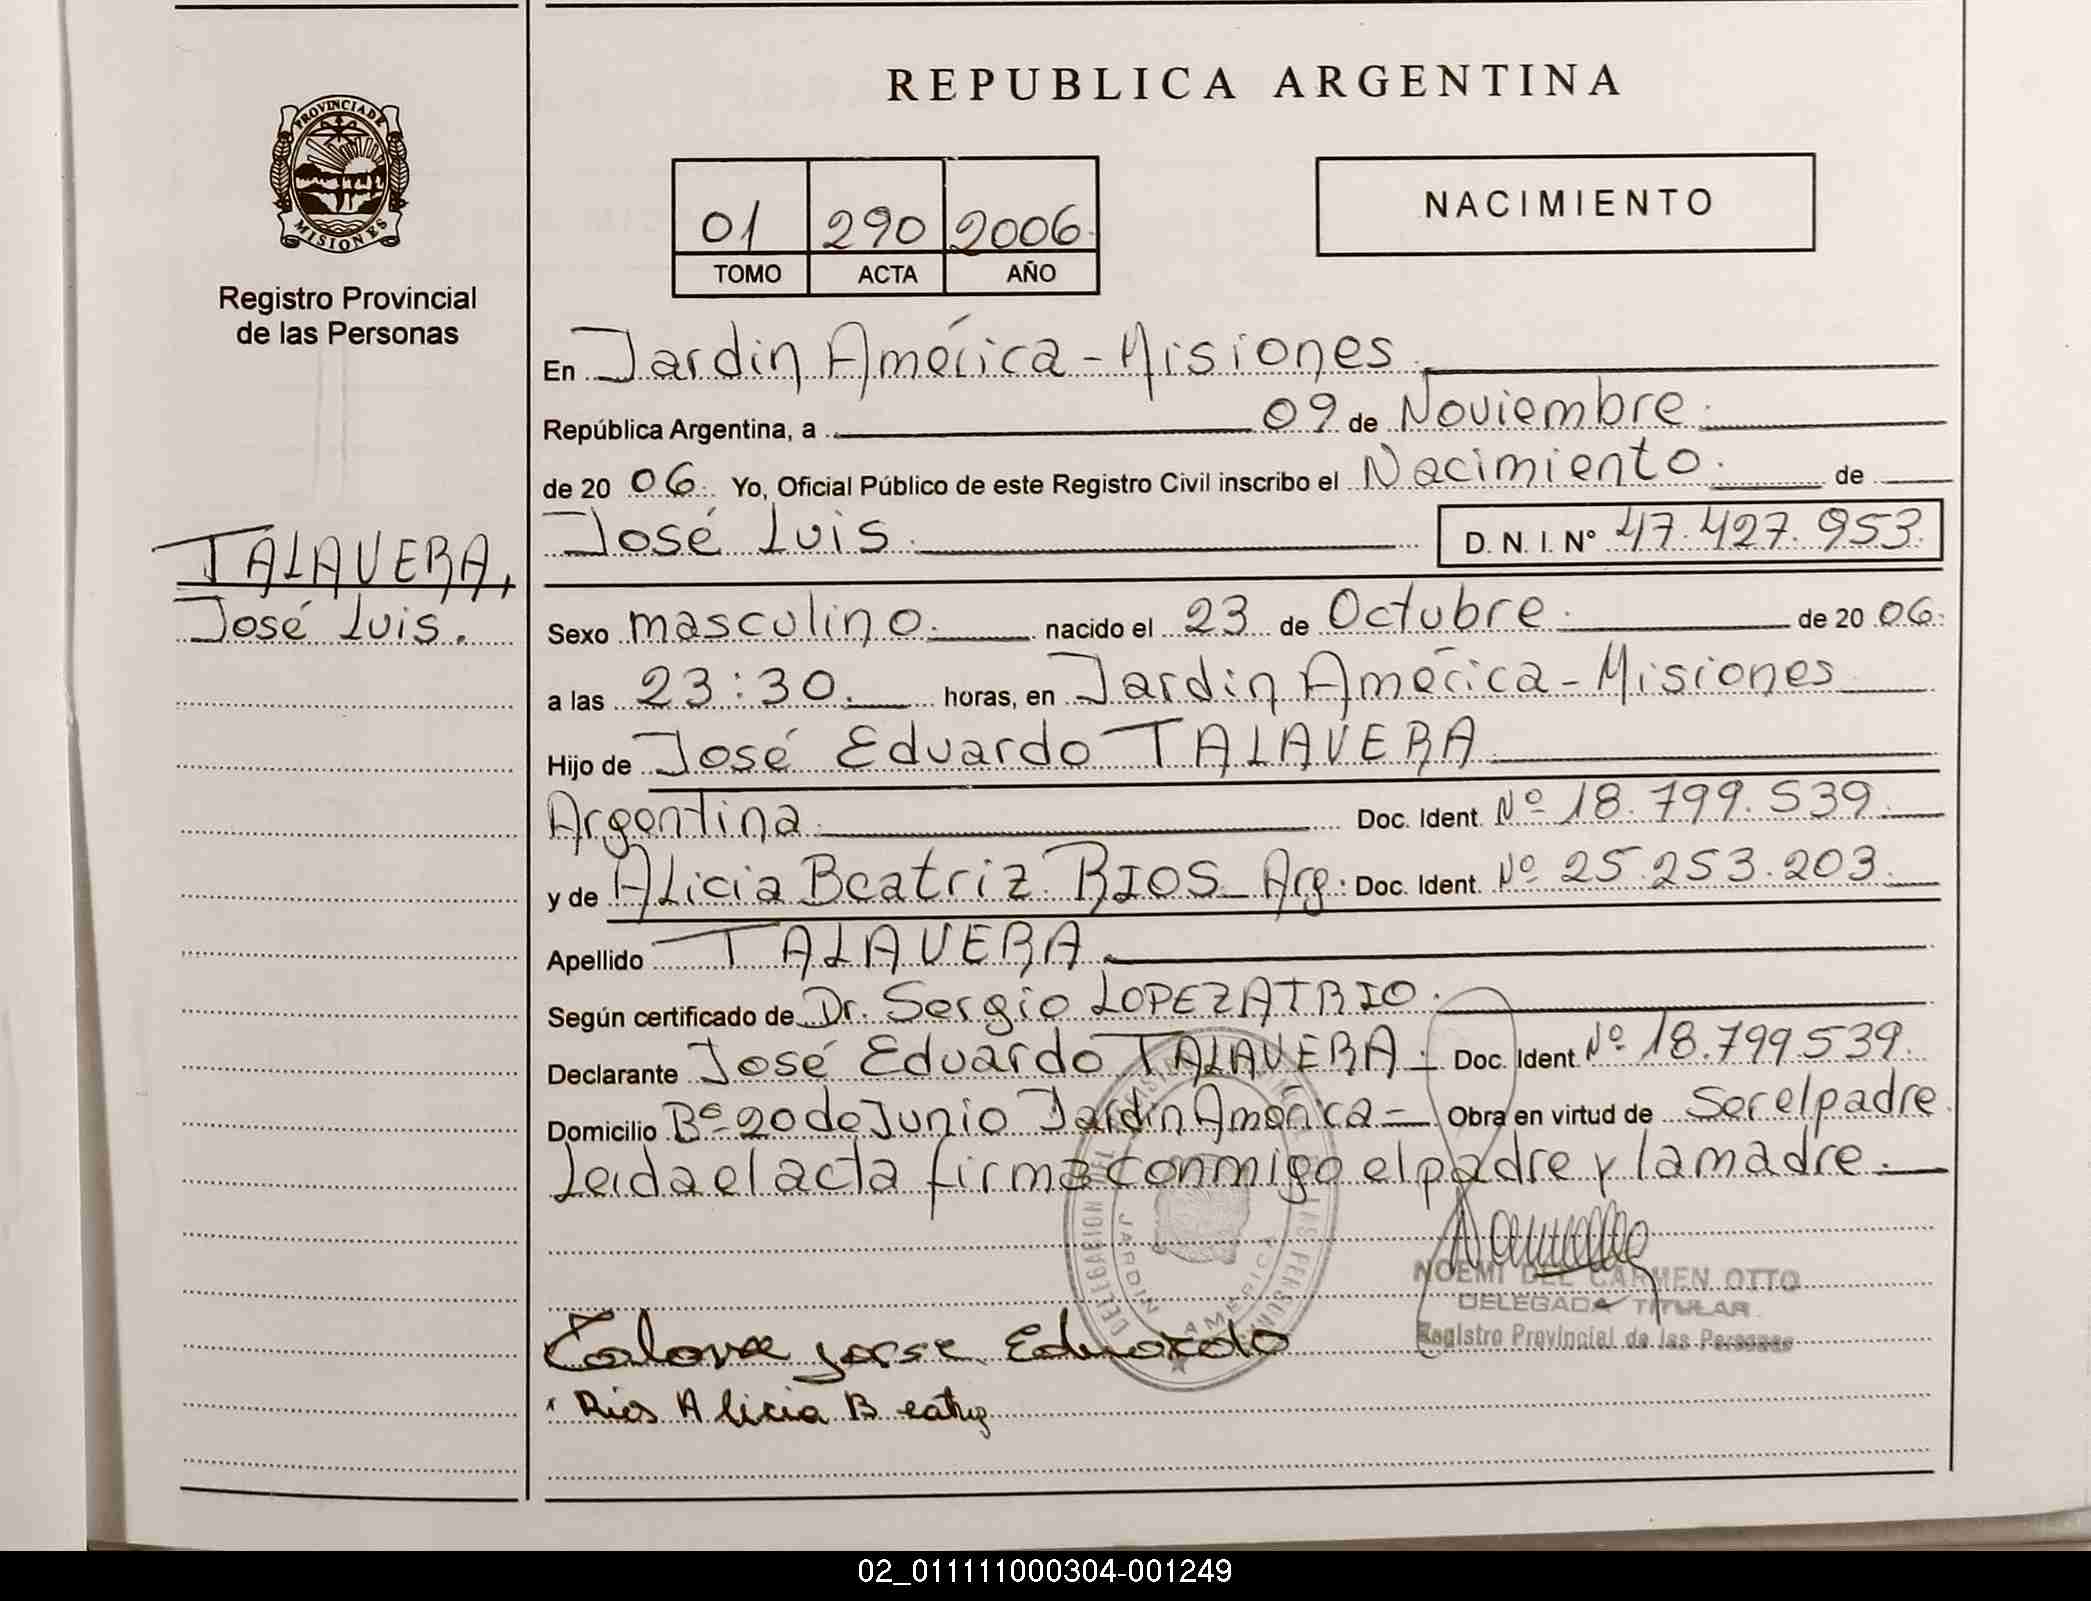 REPUBLICA ARGENTINA
PROVINCIA DE
MISIONES
Registro Provincial
de las Personas
01 290 2006
TOMO ACTA AÑO
NACIMIENTO
TALAVERA,
José Luis.
En Jardin América - Misiones
República Argentina, a 09 de Noviembre.
de 20 06. Yo, Oficial Público de este Registro Civil inscribo el Nacimiento. de
José Luis. D. N. I. Nº 47.427.953.
Sexo masculino. nacido el 23 de Octubre. de 20 06.
a las 23:30. horas, en Jardin América - Misiones
Hijo de José Eduardo TALAVERA
Argentina. Doc. Ident. Nº 18.799.539.
y de Alicia Beatriz RIOS Arg. Doc. Ident. Nº 25.253.203.
Apellido TALAVERA
Según certificado de Dr. Sergio LOPEZATRIO.
Declarante José Eduardo TALAVERA. Doc. Ident. Nº 18.799.539.
Domicilio Bº 20 de Junio Jardin América - Obra en virtud de Ser el padre.
Leida el acta firma conmigo el padre y la madre.
DELEGACION DEL
LAS PERSONAS
JARDIN AMERICA
NOEMI DEL CARMEN OTTO
DELEGADA TITULAR
Registro Provincial de las Personas
José Eduardo
Rios Alicia Beatriz
02_011111000304-001249